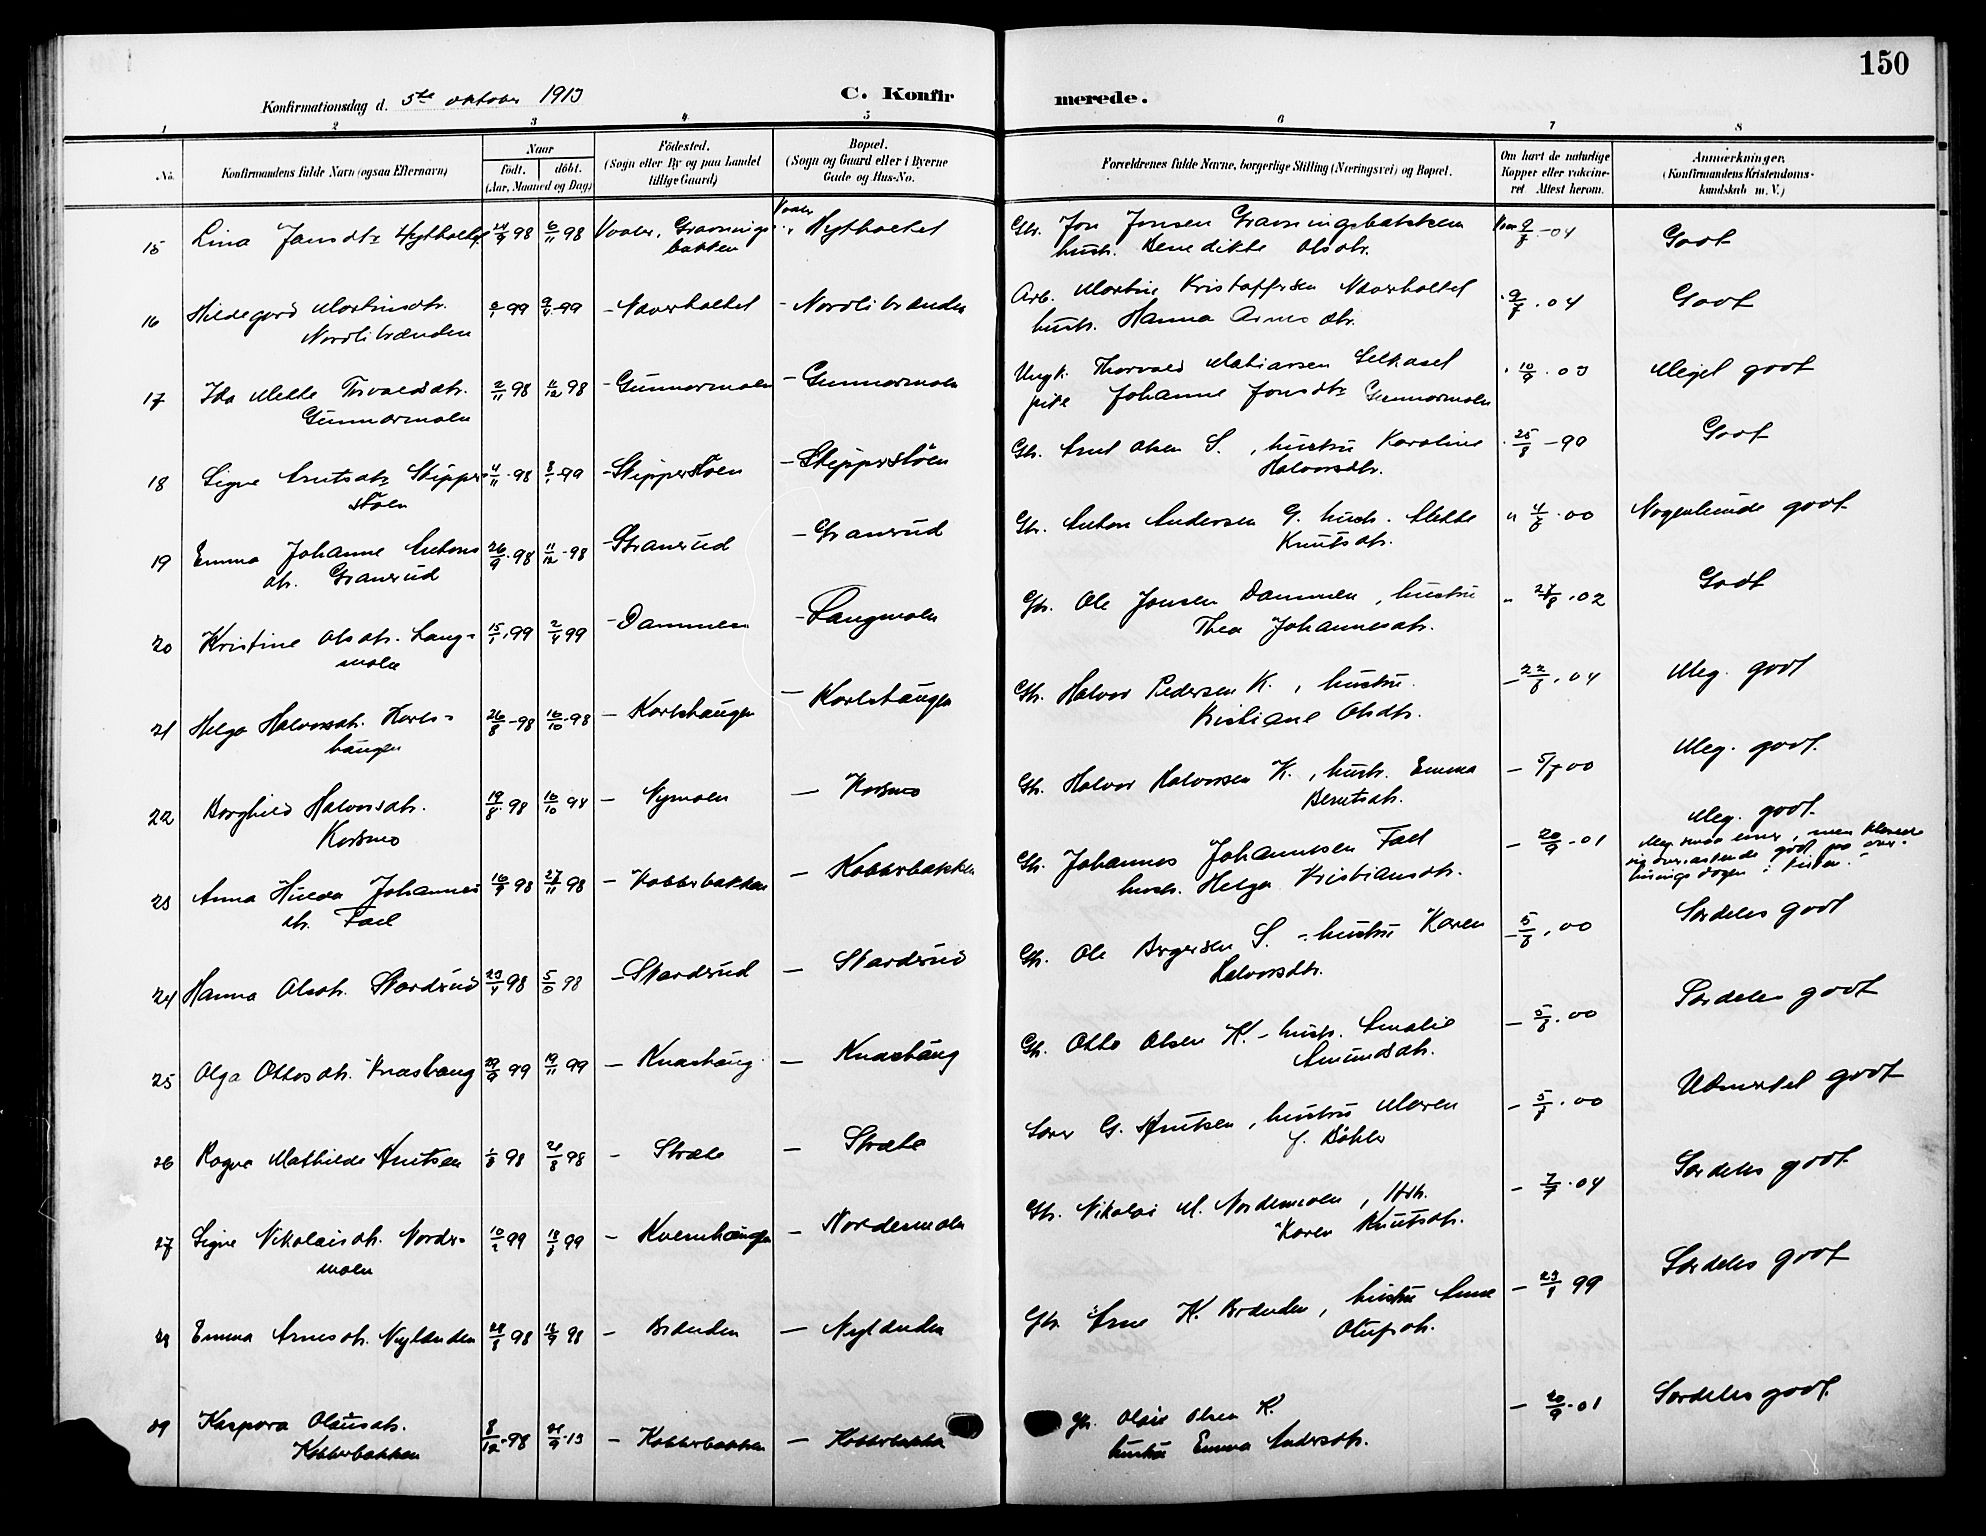 150
Konfirmationsdag d. 5te oktober 1913
C. Konfir
merede.
1 2 3 4 5 6 7 8
No.
Konfirmandens fulde Navn (ogsaa Efternavn)
Naar
födt. döbt.
(Aar, Maaned og Dag)
Födested.
(Sogn eller By og paa Landet
tillige Gaard)
Bopæl.
(Sogn og Gaard eller i Byerne
Gade og Hus-No.
Forældrenes fulde Navne, borgerlige Stilling (Næringsvei) og Bopæl.
Om havt de naturlige
Kopper eller vakcine-
ret Attest herom.
Anmærkninger.
(Konfirmandens Kristendoms-
kundskab m. V.)
15 Lina Jansdtr 98 6/11 98 Vaaler, Gravnings
bakken
Vaaler
Hytholtet
Gbr. Jon Jonsen Gravningsbakken
hustr. Benedikte Olsdtr.
9/7 - 04 Godt
16 Hildegard Martinsdtr.
Nordlibrænden
99 99 - Naverholtet - Nordlibrænden
Arb. Martin Kristoffersen Naverholtet
hustr. Hanna Arnesdtr.
9/7 . 04 Godt
17 Ida Mette Torvaldsdtr.
Gunnarmoen
2/11 98 11/12 98 - Gunnarmoen - Gunnarmoen
Ungk. Thorvald Mathiassen
pike Johanne Jonsdtr Gunnarmoen
10/9 . 03 Meget godt
18 Signe Knutsdtr Skippers
støen
4/11 - 98 8/1 - 99 - Skipperstøen - Skipperstøen
Gbr. Knut Olsen S. , hustru Karoline
Halvorsdtr.
25/8 - 99 Godt
19 Emma Johanne Antons
dtr. Granerud
26/9 - 98 11/12 - 98 - Granerud - Granerud
Gbr. Anton Andersen G. hustr. Mette
Knutsdtr.
" 4/8 . 00 Nogenlunde godt
20 Kristine Olsdtr. Lang-
moen
15/1 . 99 2/4 99 - Dammen - Langmoen
Gbr. Ole Jonsen Dammen, hustru
Thea Johannesdtr.
" 27/8 . 02 Godt
21 Helga Halvorsdtr. Karls-
haugen
26/8 - 98 16/10 - 98 - Karlshaugen - Karlshaugen
Gbr. Halvor Pedersen K. , hustru
Kristiane Olsdtr.
- 22/8 . 04 Meg. godt
22 Borghild Halvorsdtr.
Korsmo
19/8 . 98 16/10 98 - Nymoen - Korsmo
Gbr. Halvor Halvorsen K. , hustr. Emma
Berntsdtr.
- 5/7 00 Meg. godt.
23 Anna Hilda Johannes
dtr. Fall
10/9 98 27/11 98 - Kobberbakken - Kobberbakken
Gbr. Johannes Johannesen Fall
hustr. Helga Kristiansdtr.
- 20/9 - 01 Meg. godt.
24 Hanna Olsdtr. Skarderud
98 98 - Skarderud - Skarderud
Gbr. Ole Bergersen S. - hustru Karen
Halvorsdtr.
- 5/8 . 00 Særdeles godt
25 Olga Ottosdtr. Knashaug
99 19/11 99 - Knashaug - Knashaug
Gbr. Otto Olsen K. - hustr. Amalie
Amundsdtr.
- 5/8 . 00 Særdeles godt
26 Ragna Mathilde Knutsen
98 21/8 98 - Stræte - Stræte
G. Knutsen, hustru Maren
f. Bøhler
- 5/8 . 00 Udmerket godt
27 Signe Nikolaisdtr. Norder-
moen
10/2 99 18/8 99 - Kvernhaugen - Nordermoen
Gbr. Nikolai M. Nordermoen, Hstr.
Karen Knutsdtr.
- 7/7 . 04 Særdeles godt.
28 Emma Arnesdtr. Nylænden
98 18/9 98 - Brænden - Nylænden
Gbr. Arne K. Brænden, hustru Anne
Olufsdtr.
- 23/8 99 Særdeles godt
29 Kaspara Olausdtr.
Kobberbakken
8/12 - 98 21/9 - 13 - Kobberbakken - Kobberbakken
Gbr. Olaus Olsen K.
hustru Emma Andersdtr.
- 20/9 - 01 Særdeles godt.